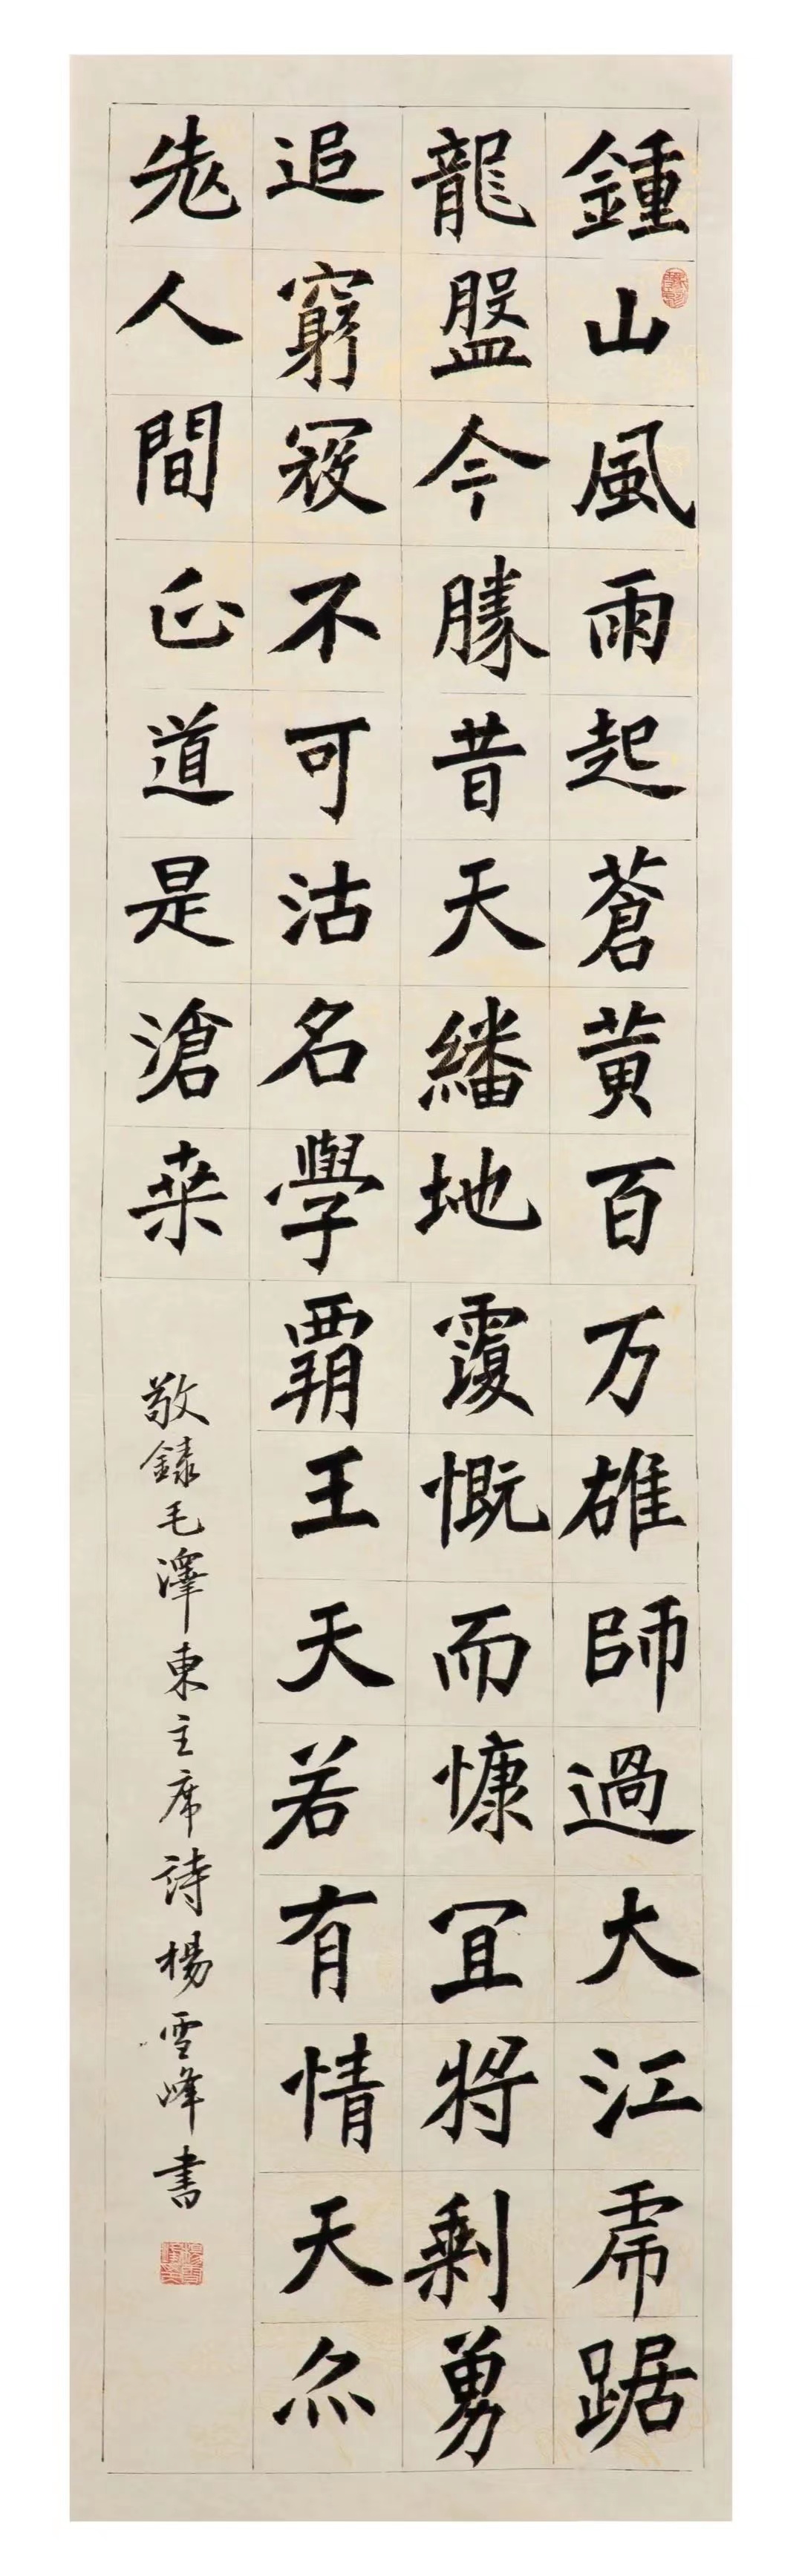 鍾山風雨起蒼黃百万雄師過大江虎踞
龍盤今勝昔天繙地覆慨而慷冝將剩勇
追窮寇不可沽名學覇王天若有情天亦
老人間正道是滄桒
敬錄毛澤東主席詩楊雪峰書